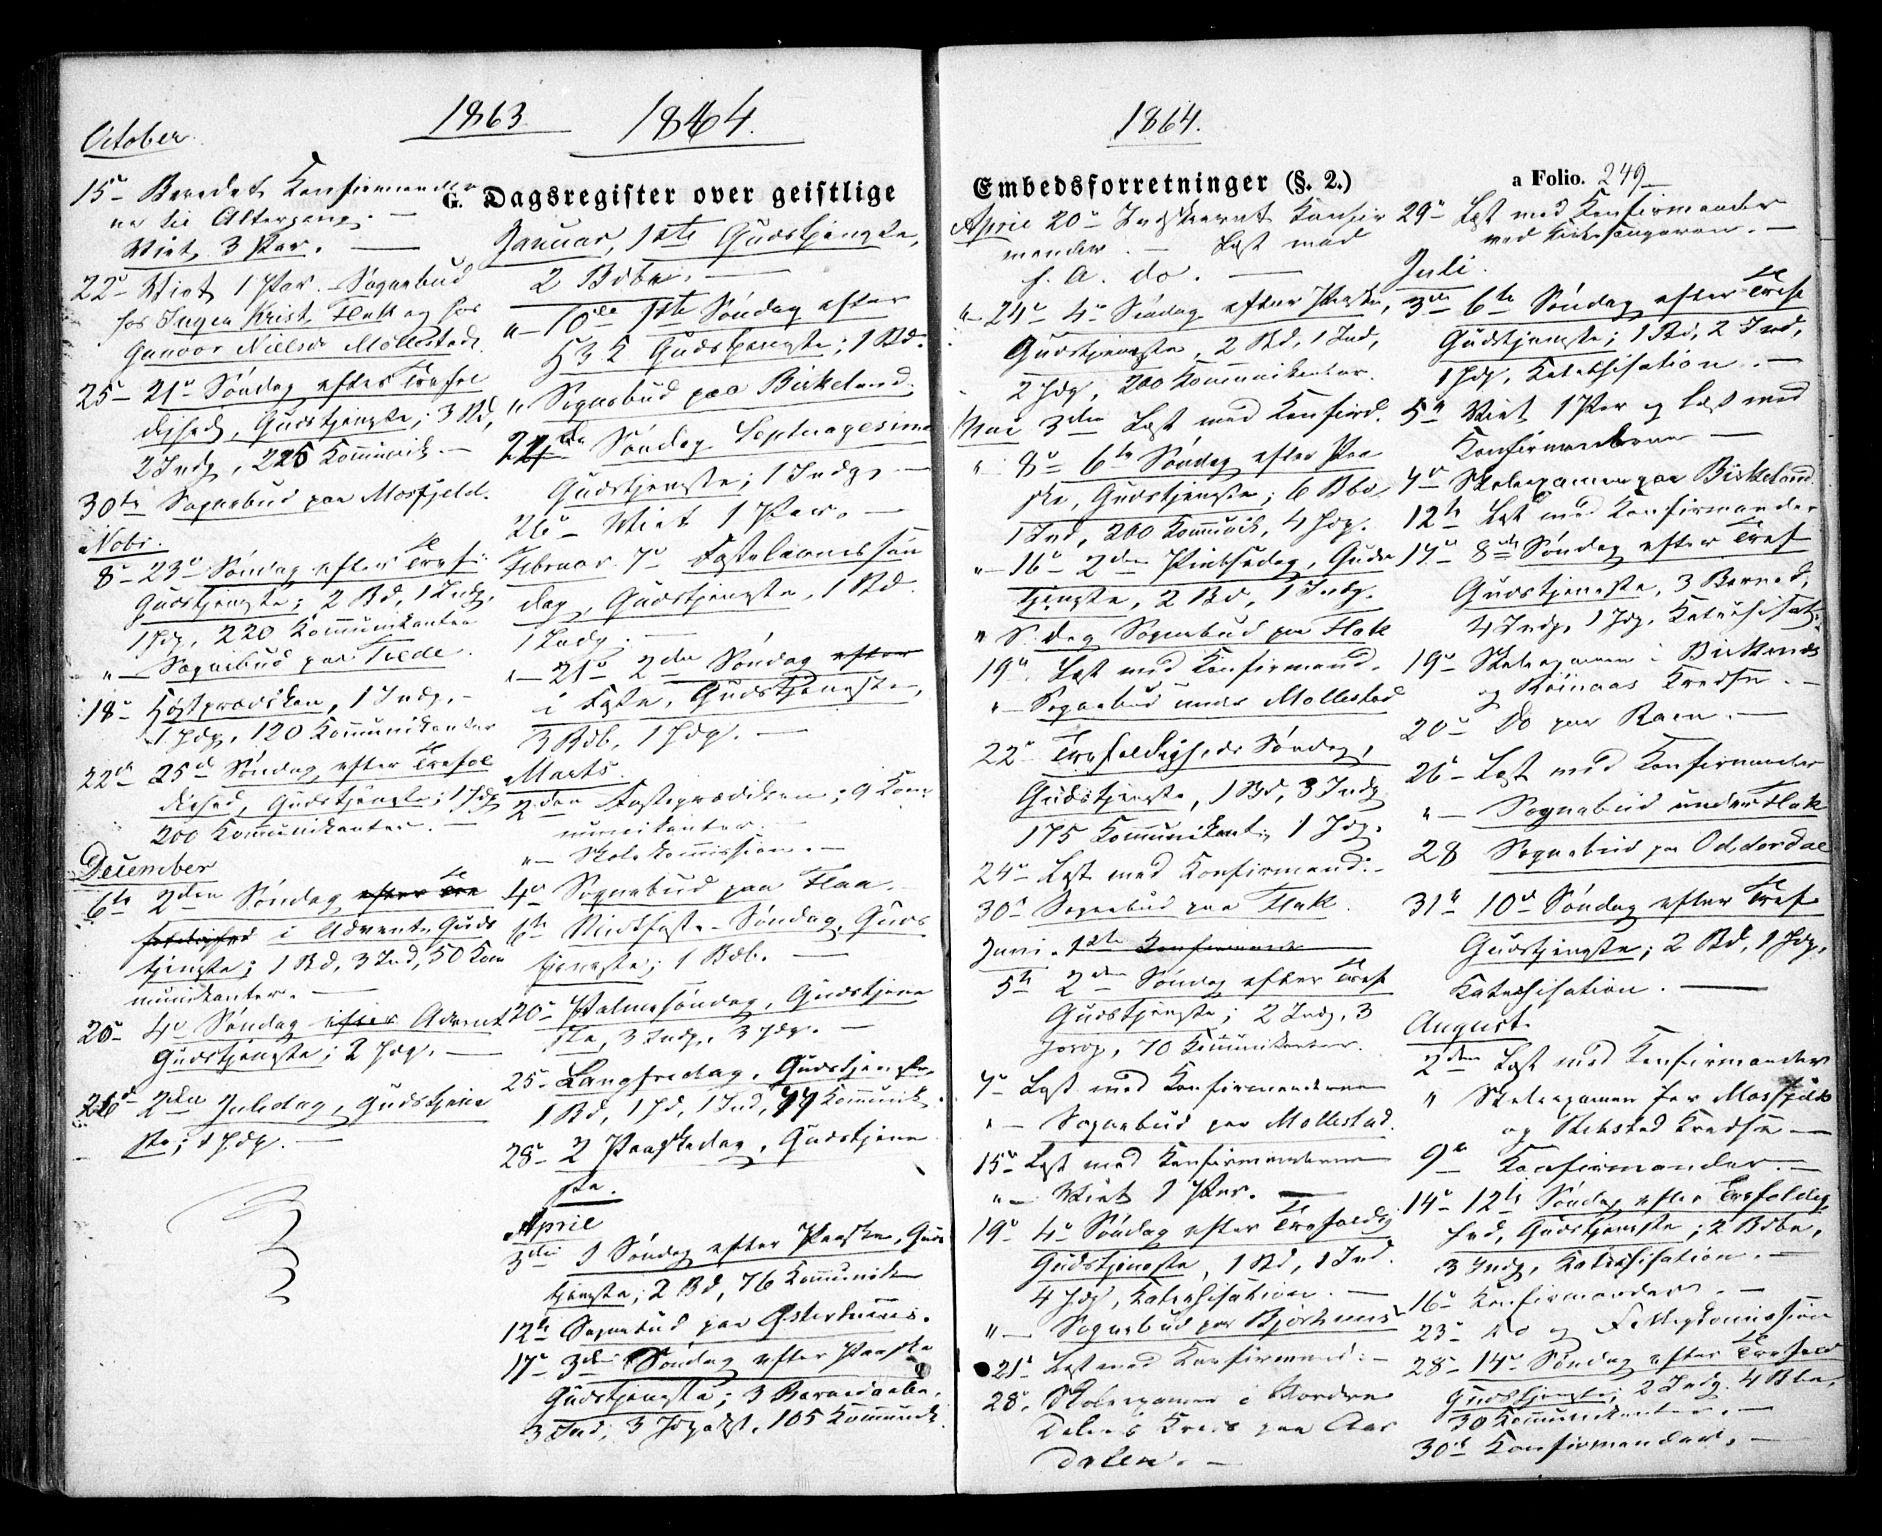 1863
1864.
October
G. Dagsregister over geistlige
15de Beredet Konfirmander
ne til Altergang.
Viet 3 Par.
22de Viet 1 Par. Sognebud
hos Inger Krist. Flak og hos
Gunvor Nielsd. Mollestad.
25 21de Søndag efter Trefol
dighed, Gudstjeneste; 3 Bd,
2 Indg, 225 Kommunik.
30te Sognebud paa Mosfjeld.
Novbr.
8de 23de Søndag efter Tref:
Gudstjeneste; 2 Bd, 1 Indg,
1 Jdp, 220 Kommunikanter
" Sognebud paa Tvede.
18de Høstprædiken, 1 Indg,
1 Jdp, 120 Kommunikanter
22de 25de Søndag efter Trefol
dighed, Gudstjeneste; 1 Jdp
200 Kommunikanter.
December
6te 2den Søndag efter Tre
foldighed i Advent, Guds
tjeneste; 1 Bd, 3 Ind, 50 Kom
munikanter.
20 4de Søndag efter Advent
Gudstjeneste; 2 Jdp,
26de 2den Juledag, Gudstjene
ste; 1 Jdp.
Januar, 1ste Gudstjeneste,
2 Bdbe,
" 10de 1ste Søndag efter
H3K Gudstjeneste; 1 Bd.
" Sognebud paa Birkeland.
24de Søndag Septuagesima
Gudstjeneste; 1 Indg,
26de Viet 1 Par.
Februar 7de Fastelavnssøn
dag, Gudstjeneste, 1 Bd.
1 Indg.
" 21de 2den Søndag efter
i Faste, Gudstjeneste,
3 Bdb, 1 Jdp.
Marts.
2den Fasteprædiken; 9 Kom
munikanter.
" Skolekommission.
4de Sognebud paa Flaa.
6te Midfaste-Søndag, Guds
tjeneste; 1 Bdb.
20de Palmesøndag, Gudstjene
ste, 3 Indg, 3 Jdp.
25 Langfredag, Gudstjeneste,
1 Bd, 1 Jd, 1 Ind, 77 Kommunik.
28de 2 Paaskedag, Gudstjene
ste.
April
3die 1 Søndag efter Paaske, Guds
tjeneste; 2 Bd, 76 Kommunik
12te Sognebud paa
17de 3die Søndag efter Paaske
Gudstjeneste; 3 Barnedaabe,
3 Ind, 3 Jdp, 105 Kommunik.
1864.
Embedsforretninger (§. 2.)
a Folio. 249
April 20de Indskrevet Konfir
mander. Læst med
f. A. do.
" 24de 4de Søndag efter Paaske,
Gudstjeneste, 2 Bd, 1 Ind,
2 Jdp, 200 Kommunikanter.
Mai 3die Læst med Konfird.
" 8de 6te Søndag efter Paa
ske, Gudstjeneste; 6 Bbd,
1 Ind, 200 Kommunik, 4 Jdp.
" 16de 2den Pintsedag, Guds
tjeneste, 2 Bd, 1 Indg.
" S. dag Sognebud paa Flak
19de Læst med Konfirmand.
" Sognebud under Mollestad
22de Trefoldigheds Søndag,
Gudstjeneste, 1 Bd, 3 Indg
175 Kommunikant, 1 Jdp.
24de Læst med Konfirmand:
30de Sognebud paa Flak.
Juni. 1ste Konfirmand
5te 2den Søndag efter Tref
Gudstjeneste; 2 Indg, 3
Jordp, 70 Kommunikanter.
7de Læst med Konfirmanderne
" Sognebud paa Mollestad.
15de Læst med Konfirmanderne
" Viet 1 Par.
19de 4de Søndag efter Trefoldig
Gudstjeneste, 1 Bd, 1 Ind.
4 Jdp, Katechisation.
" Sognebud paa
21de Læst med Konfirmand:
28de Skoleexamen i Nordre
Dalens Kreds paa Aas
Dalen.
29de Læst med Konfirmander
ved Kirkesangeren.
Juli.
3die 6te Søndag efter Tref
Gudstjeneste; 1 Bd, 2 Ind,
1 Jdp, Katechisation.
5te Viet 1 Par og Læst med
Konfirmanderne
7de Skoleexamen paa Birkeland
12te Læst med Konfirmander
17de 8de Søndag efter Tref
Gudstjeneste, 3 Barned,
4 Indg, 1 Jdp, Katechisat:
19de Skoleexamen i
og Kredse.
20de Do paa
26de Læst med Konfirmander
" Sognebud under Flak
28 Sognebud paa Oddersdal
31te 10de Søndag efter Tref
Gudstjeneste; 2 Bd, 1 Jdp,
Katechisation.
August.
2den Læst med Konfirmander
" Skoleexamen for Mosfjeld
og Kredse
9de Konfirmander.
14de 12te Søndag efter Trefoldig
hed, Gudstjeneste; 2 Bdbe,
3 Indg, Katechisation.
16de Konfirmander.
23de Do og Fattigkommission
28de 14de Søndag efter Trefold
Gudstjeneste; 2 Indg. 4 Bbe,
30 Kommunikanter.
30te Konfirmander.